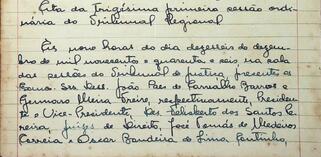 Acta da Trigésima primeira sessão ordi-
nária do Tribunal Regional
Ás nove horas do dia dezesseis de dezem-
bro de mil novecentos e quarenta e seis, na sala
das sessões do Tribunal de Justiça, presentes os
Exmos. Srs. Des. João Paes de Carvalho Barros e
Genaro Freire, respectivamente, Presiden-
te e Vice-Presidente, Des. Felisberto dos Santos Pe-
reira, juizes de Direito, José Tomás de Medeiros
Correia e Oscar Bandeira de Lima Coutinho,